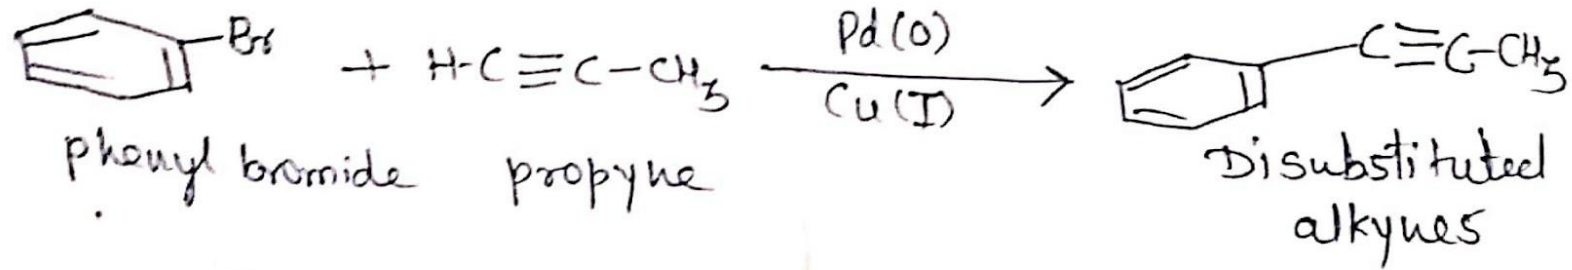 Br + H-C≡C-CH3 Pd(0) Cu(I) C≡C-CH3
phenyl bromide propyne Disubstituted
alkynes